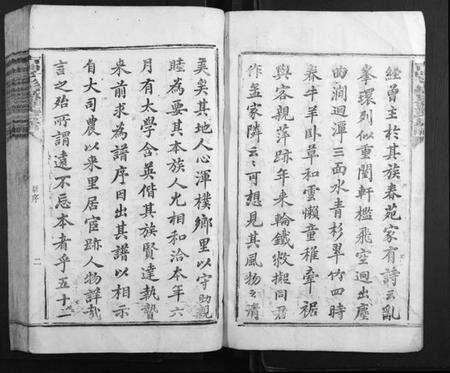 經曾主於其族春苑家有詩云亂
峯環列似重闉軒檻飛空迥出塵
曲澗迴潭三面水青杉翠竹四時
春牛羊臥草和雲懶童稚牽裾
與客親萍跡年來輪鐵
作並家隣云云可想見其風物之清
美矣其地人心渾樸鄉里以守助親
睦為要其本族人尤相和洽本年六
月有大學含英偕其族賢達執贄
來前求為譜序因出其譜以相示
自大司農以來里居官跡人物詳哉
言之殆所謂遠不忘本者乎五十一
序
二